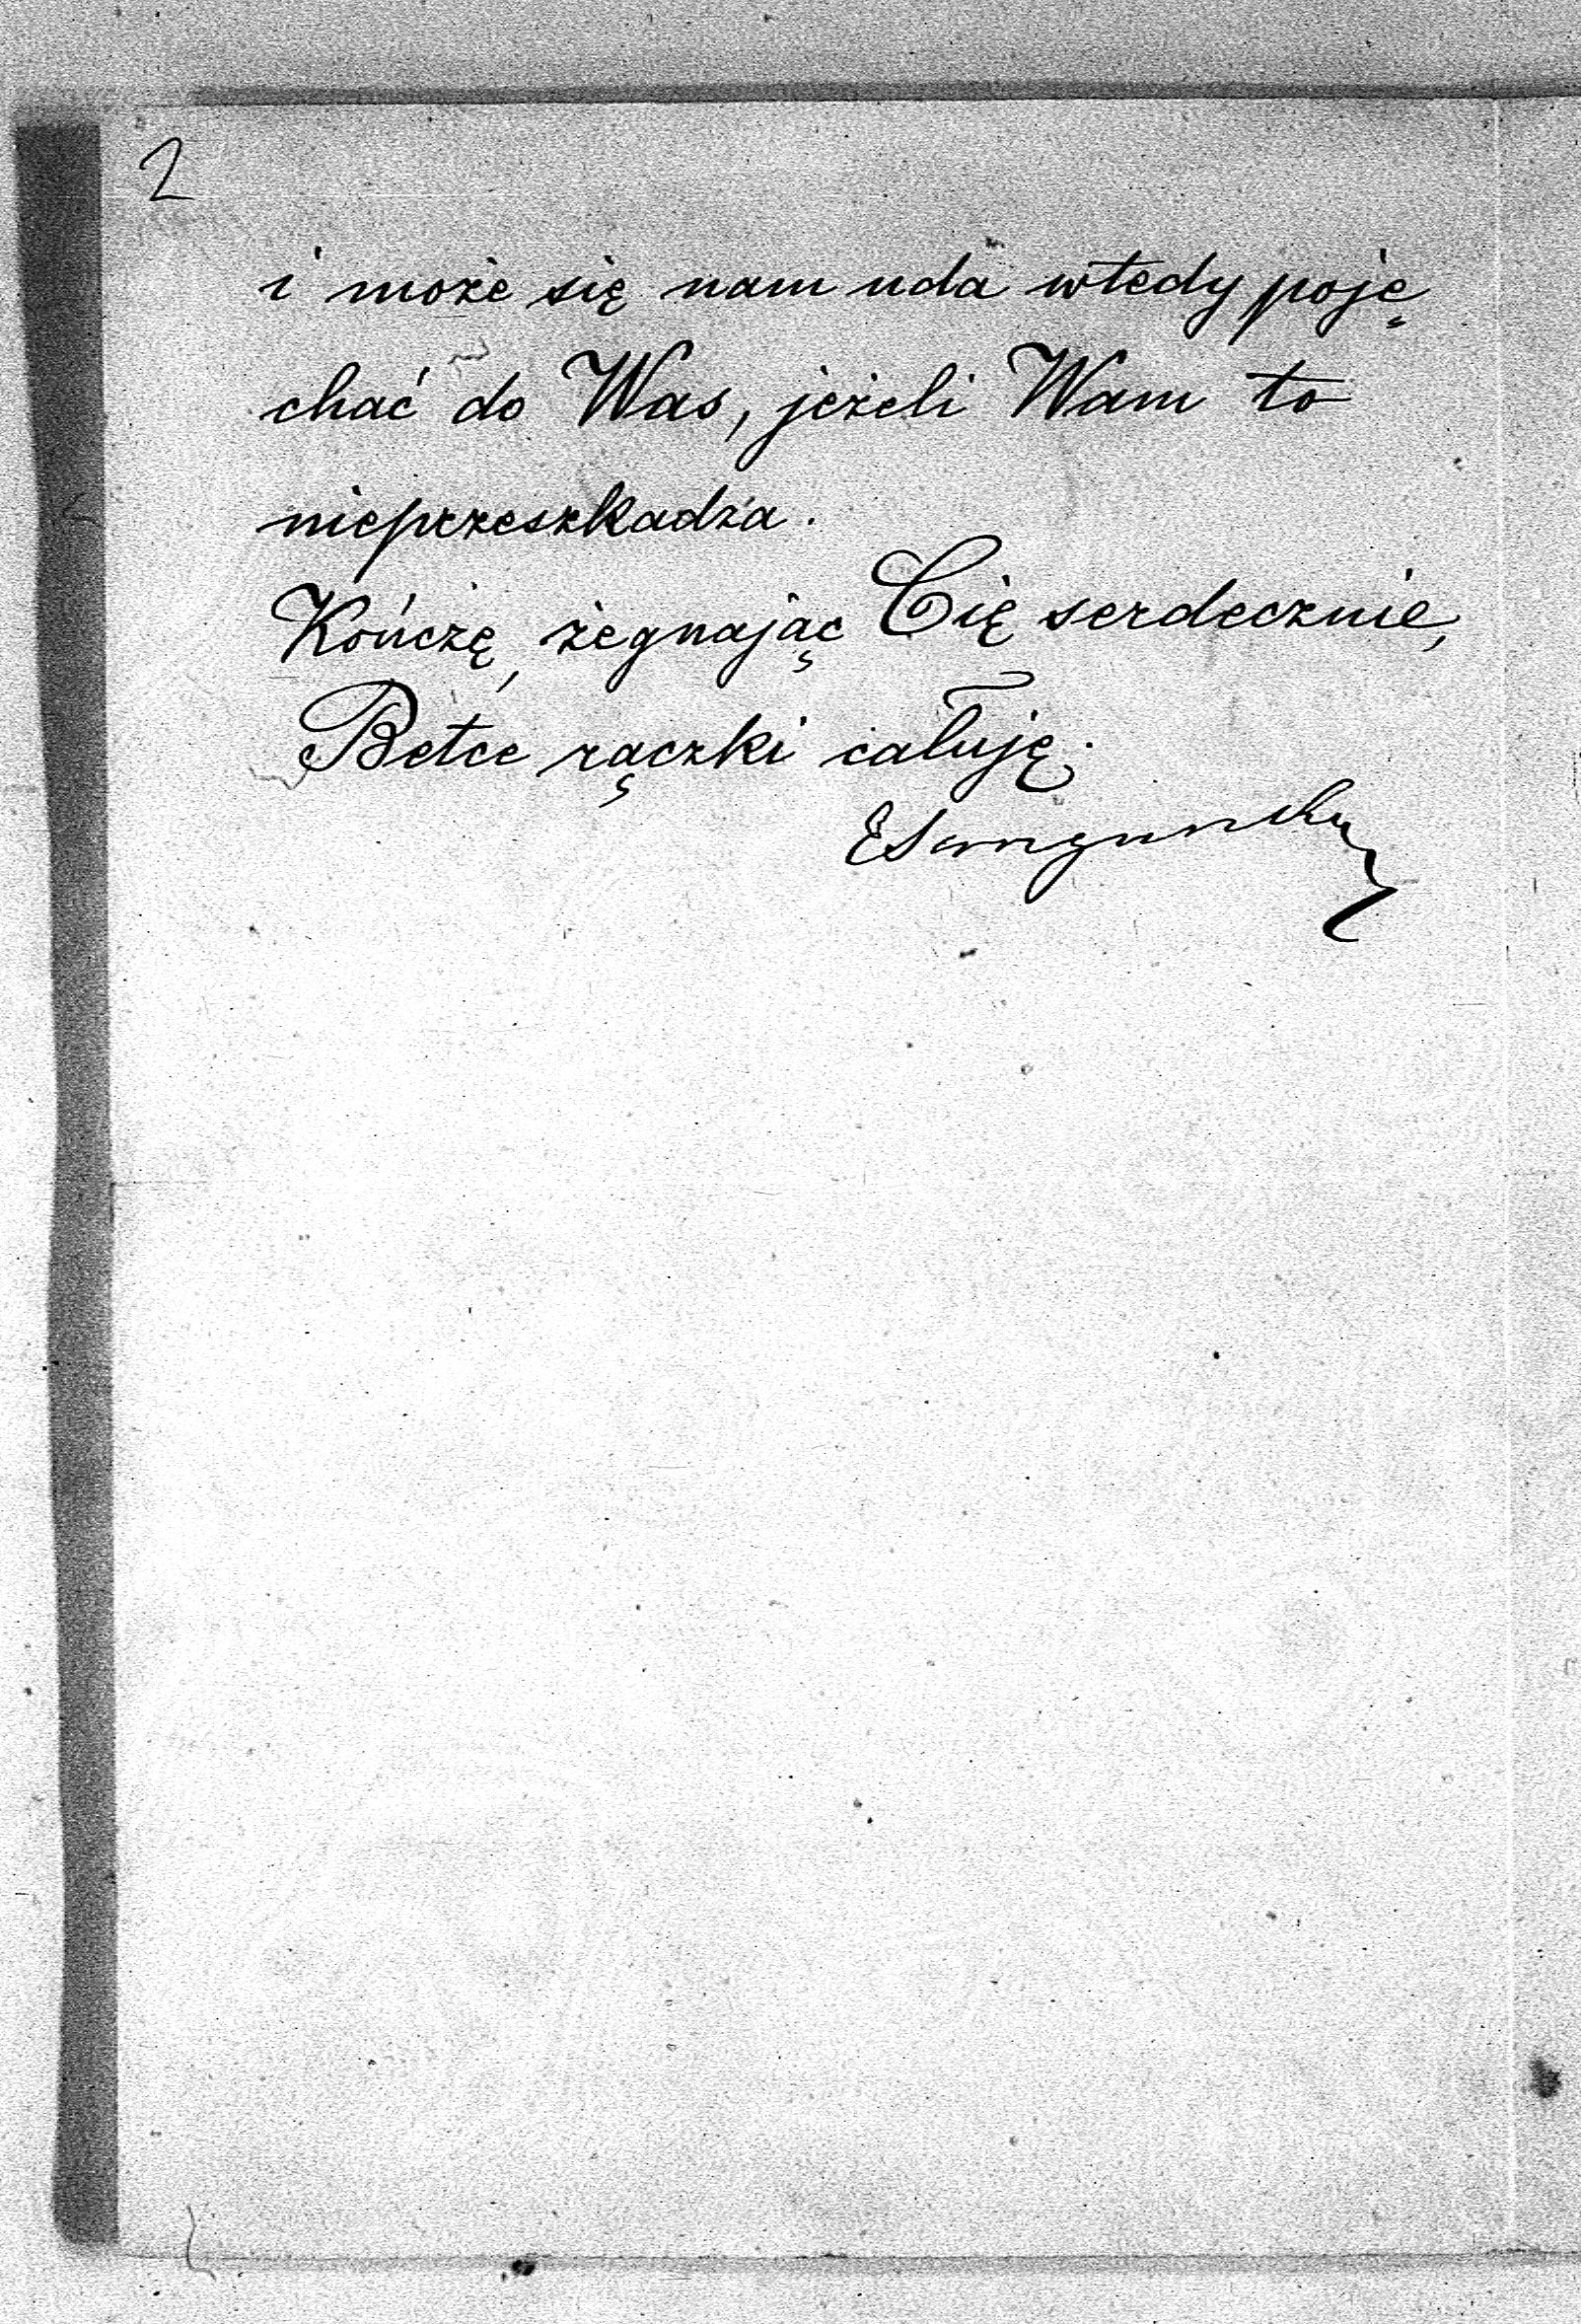 2
i może się nam uda wtedy poję
chać do Was, jeżeli Wam to
nieprzeszkadza.
Kończę, żegnając Cię serdecznie,
Betce rączki całuję.